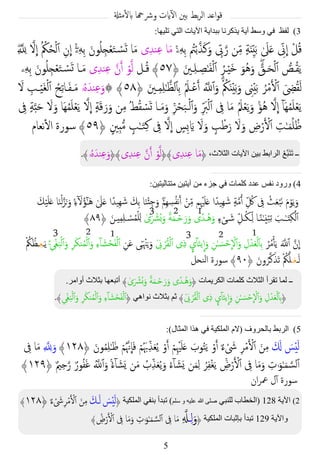 قواعد الربط بين الآيات وشرحها بالأمثلة
3) لفظ في وسط آية يذكرنا ببداية الآيات التي تليها:
قُلْ إِنِّى عَلَىٰ بَيِّنَةٍ مِّن رَّبِّى وَكَذَّبْتُم بِهِۦ مَا عِندِى مَا تَسْتَعْجِلُونَ بِهِۦٓ إِنِ ٱلْحُكْمُ إِلَّا لِلَّهِ
يَقُصُّ ٱلْحَقَّ وَهُوَ خَيْرُ ٱلْفَـٰصِلِينَ ﴿٥٧﴾ قُل لَّوْ أَنَّ عِندِى مَا تَسْتَعْجِلُونَ بِهِۦ
لَقُضِىَ ٱلْأَمْرُ بَيْنِى وَبَيْنَكُمْ وَٱللَّهُ أَعْلَمُ بِٱلظَّـٰلِمِينَ ﴿٥٨﴾ ۞ وَعِندَهُۥ مَفَاتِحُ ٱلْغَيْبِ لَا
يَعْلَمُهَآ إِلَّا هُوَ وَيَعْلَمُ مَا فِى ٱلْبَرِّ وَٱلْبَحْرِ وَمَا تَسْقُطُ مِن وَرَقَةٍ إِلَّا يَعْلَمُهَا وَلَا حَبَّةٍ فِى
ظُلُمَـٰتِ ٱلْأَرْضِ وَلَا رَطْبٍ وَلَا يَابِسٍ إِلَّا فِى كِتَـٰبٍ مُّبِينٍ ﴿٥٩﴾ سورة الأنعام
ــ تتبّع الرابط بين الآيات الثلاث، ﴿مَا عِندِى﴾ ﴿لَّوْ أَنَّ عِندِى﴾ ﴿وَعِندَهُۥ﴾.
4) ورود نفس عدد كلمات في جزء من آيتين متتاليتين:
وَيَوْمَ نَبْعَثُ فِى كُلِّ أُمَّةٍ شَهِيدًا عَلَيْهِم مِّنْ أَنفُسِهِمْ وَجِئْنَا بِكَ شَهِيدًا عَلَىٰ هَـٰٓؤُلَآءِ وَنَزَّلْنَا عَلَيْكَ
ٱلْكِتَـٰبَ تِبْيَـٰنًا لِّكُلِّ شَىْءٍ وَهُدًى وَرَحْمَةً وَبُشْرَىٰ لِلْمُسْلِمِينَ ﴿٨٩﴾
2 3
إِنَّ ٱللَّهَ يَأْمُرُ بِٱلْعَدْلِ وَٱلْإِحْسَـٰنِ وَإِيتَآئِ ذِى ٱلْقُرْبَىٰ وَيَنْهَىٰ عَنِ ٱلْفَحْشَآءِ وَٱلْمُنكَرِ وَٱلْبَغْىِ يَعِظُكُمْ
1 2 3 1 2 3
لَعَلَّكُمْ تَذَكَّرُونَ ﴿٩٠﴾ سورة النحل
ــ لما تقرأ الثلاث كلمات الكريمات ﴿وَهُدًى وَرَحْمَةً وَبُشْرَىٰ﴾ أتبعها بثلاث أوامر.
﴿بِٱلْعَدْلِ وَٱلْإِحْسَـٰنِ وَإِيتَآئِ ذِى ٱلْقُرْبَىٰ﴾ ثم بثلاث نواهي ﴿ٱلْفَحْشَآءِ وَٱلْمُنكَرِ وَٱلْبَغْىِ﴾.
5) الربط بالحروف (لام الملكية في هذا المثال):
لَيْسَ لَكَ مِنَ ٱلْأَمْرِ شَىْءٌ أَوْ يَتُوبَ عَلَيْهِمْ أَوْ يُعَذِّبَهُمْ فَإِنَّهُمْ ظَـٰلِمُونَ ﴿١٢٨﴾ وَلِلَّهِ مَا فِى
ٱلسَّمَـٰوَٰتِ وَمَا فِى ٱلْأَرْضِ يَغْفِرُ لِمَن يَشَآءُ وَيُعَذِّبُ مَن يَشَآءُ وَٱللَّهُ غَفُورٌ رَّحِيمٌ ﴿١٢٩﴾
سورة آل عمران
2) الآية 128 (الخطاب للنبي صلى الله عليه و سلم) تبدأ بنفي الملكية ﴿لَيْسَ لَكَ مِنَ ٱلْأَمْرِ شَىْءٌ﴾ ﴿١٢٨﴾
والآية 129 تبدأ بإثبات الملكية ﴿وَلِلَّهِ مَا فِى ٱلسَّمَـٰوَٰتِ وَمَا فِى ٱلْأَرْضِ﴾
5